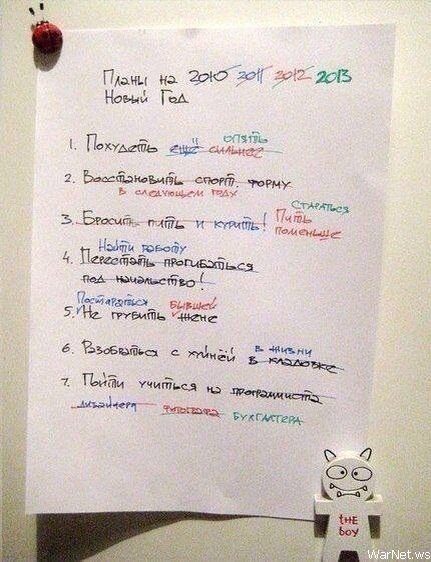 Планы на 2010 2011 2012 2013
Новый Год
опять
1. Похудеть ещё сильнее
2. Восстановить спорт. форму
в следующем году
стараться
3. Бросить пить и курить! Пить
поменьше
Найти работу
4. Перестать прогибаться
под начальство!
Постараться бывшей
5. Не грубить жене
в жизни
6. Разобраться с хуйнёй в кладовке
7. Пойти учиться на программиста
дизайнера фотографа бухгалтера
the
boy
WarNet.ws